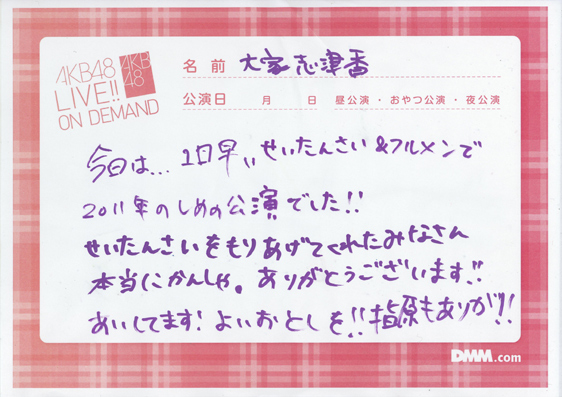 AKB48
LIVE!!
ON DEMAND
AKB
48
名前 大家志津香
公演日 月 日 昼公演・おやつ公演・夜公演
今日は... 1日早いせいたんさい&フルメンで
2011年のしめの公演でした!!
せいたんさいをもりあげてくれたみなさん
本当にかんしゃ。ありがとうございます!!
あいしてます!よいおとしを!!指原もありが!!
DMM.com